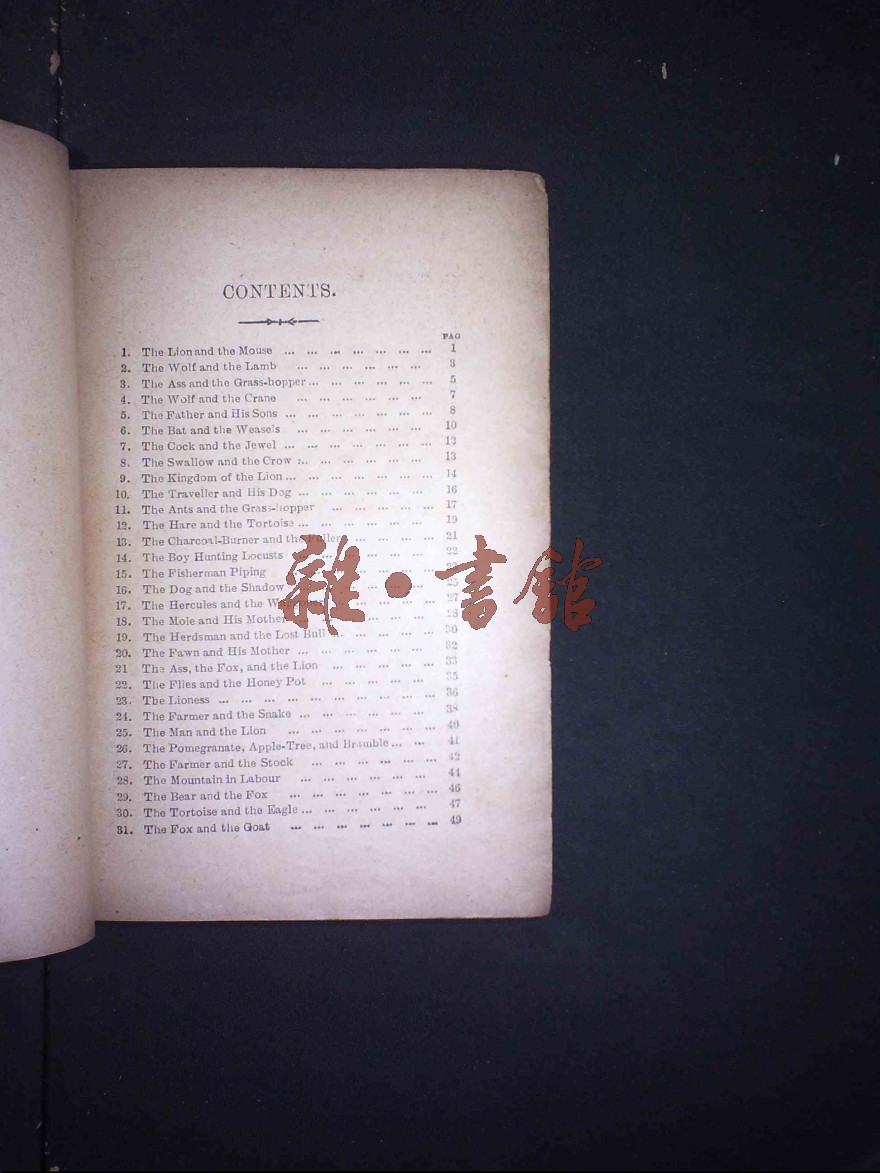 CONTENTS.
PAG
1. The Lion and the Mouse ... ... ... ... ... ... ... 1
2. The Wolf and the Lamb ... ... ... ... ... ... 3
3. The Ass and the Grass-hopper ... ... ... ... ... ... 5
4. The Wolf and the Crane ... ... ... ... ... ... 7
5. The Father and His Sons ... ... ... ... ... ... ... 8
6. The Bat and the Weasels ... ... ... ... ... ... 10
7. The Cock and the Jewel ... ... ... ... ... ... ... 12
8. The Swallow and the Crow ... ... ... ... ... ... 13
9. The Kingdom of the Lion ... ... ... ... ... ... ... 14
10. The Traveller and His Dog ... ... ... ... ... ... 16
11. The Ants and the Grass-hopper ... ... ... ... ... 17
12. The Hare and the Tortoise ... ... ... ... ... ... 19
13. The Charcoal-Burner and the Fuller ... ... ... ... 21
14. The Boy Hunting Locusts ... ... ... ... ... ... 22
15. The Fisherman Piping
16. The Dog and the Shadow ... ... ... ... ... ... 25
17. The Hercules and the ... ... ... ... 27
18. The Mole and His Mother ... ... ... ... ... 28
19. The Herdsman and the Lost Bull ... ... ... ... ... 30
20. The Fawn and His Mother ... ... ... ... ... ... 32
21 The Ass, the Fox, and the Lion ... ... ... ... ... 33
22. The Flies and the Honey Pot ... ... ... ... ... 35
23. The Lioness ... ... ... ... ... ... ... ... ... ... 36
24. The Farmer and the Snake ... ... ... ... ... ... 38
25. The Man and the Lion ... ... ... ... ... ... ... 40
26. The Pomegranate, Apple-Tree, and Bramble ... ... 41
27. The Farmer and the Stock ... ... ... ... ... ... 42
28. The Mountain in Labour ... ... ... ... ... ... 44
29. The Bear and the Fox ... ... ... ... ... ... ... 46
30. The Tortoise and the Eagle ... ... ... ... ... ... 47
31. The Fox and the Goat ... ... ... ... ... ... ... 49
雜·書館